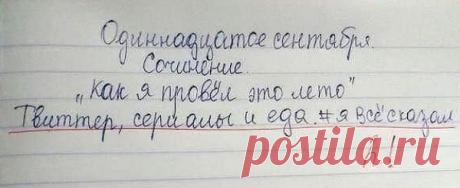 Одиннадцатое сентября.
Сочинение.
„Как я провёл это лето"
Твиттер, сериалы и еда. #я всё сказал
postila.ru